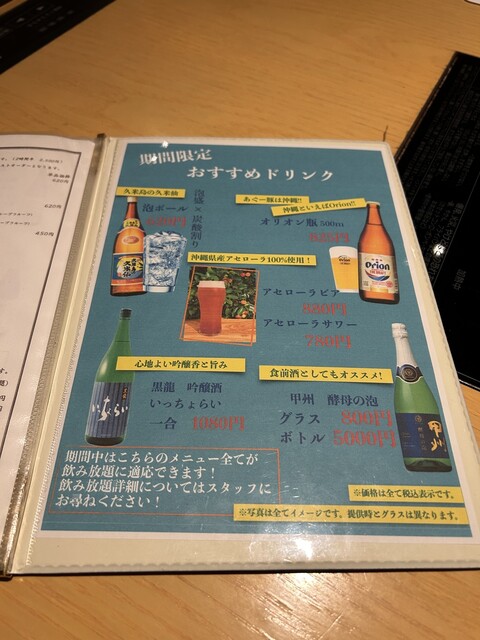 期間限定
おすすめドリンク
久米島の久米仙
泡盛×炭酸割り
泡ボール
あぐー豚は沖縄!!
沖縄といえばOrion!!
オリオン瓶 500m
沖縄県産アセロラ100%使用！
アセロラビア
880円
アセロラサワー
780円
心地よい吟醸香と旨み
黒龍 吟醸酒
いっちょらい
一合 1080円
食前酒としてもオススメ!
甲州 酵母の泡
グラス 800円
ボトル 5000円
期間中はこちらのメニュー全てが
飲み放題に適応できます！
飲み放題詳細についてはスタッフに
お尋ねください！
※価格は全て税込表示です。
※写真は全てイメージです。提供時とグラスは異なります。
Orion
久米仙
いっちょらい
甲州